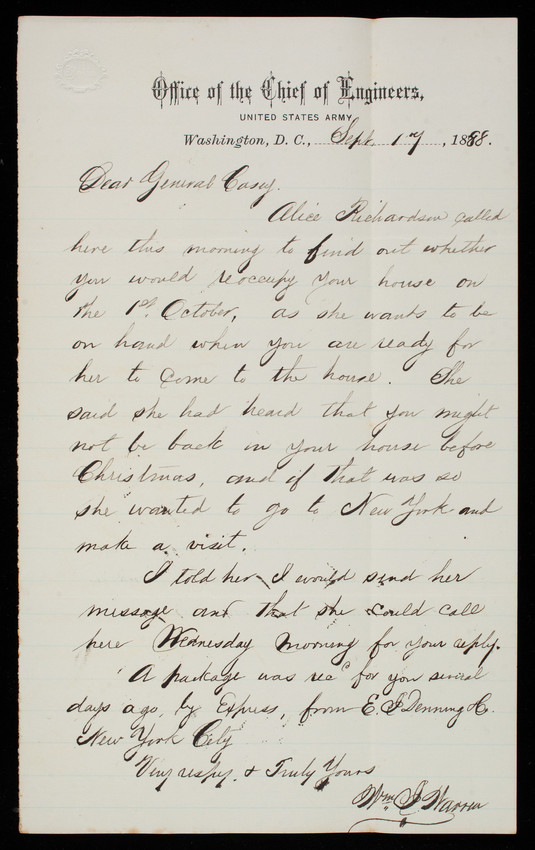 Office of the Chief of Engineers,
UNITED STATES ARMY
Washington, D. C., Sept. 17, 1888.
Dear General Casey.
Alice Richardson called
here this morning to find out whether
you would reoccupy your house on
the 1st. October, as she wants to be
on hand when you are ready for
her to come to the house. She
said she had heard that you might
not be back in your house before
Christmas, and if that was so
she wanted to go to New York and
make a visit.
I told her I would send her
message and that she could call
here Wednesday morning for your reply.
A package was recd for you several
days ago, by Express, from E. J. Denning & Co.
New York City
Very respy. & Truly Yours
Wm. J. Warren